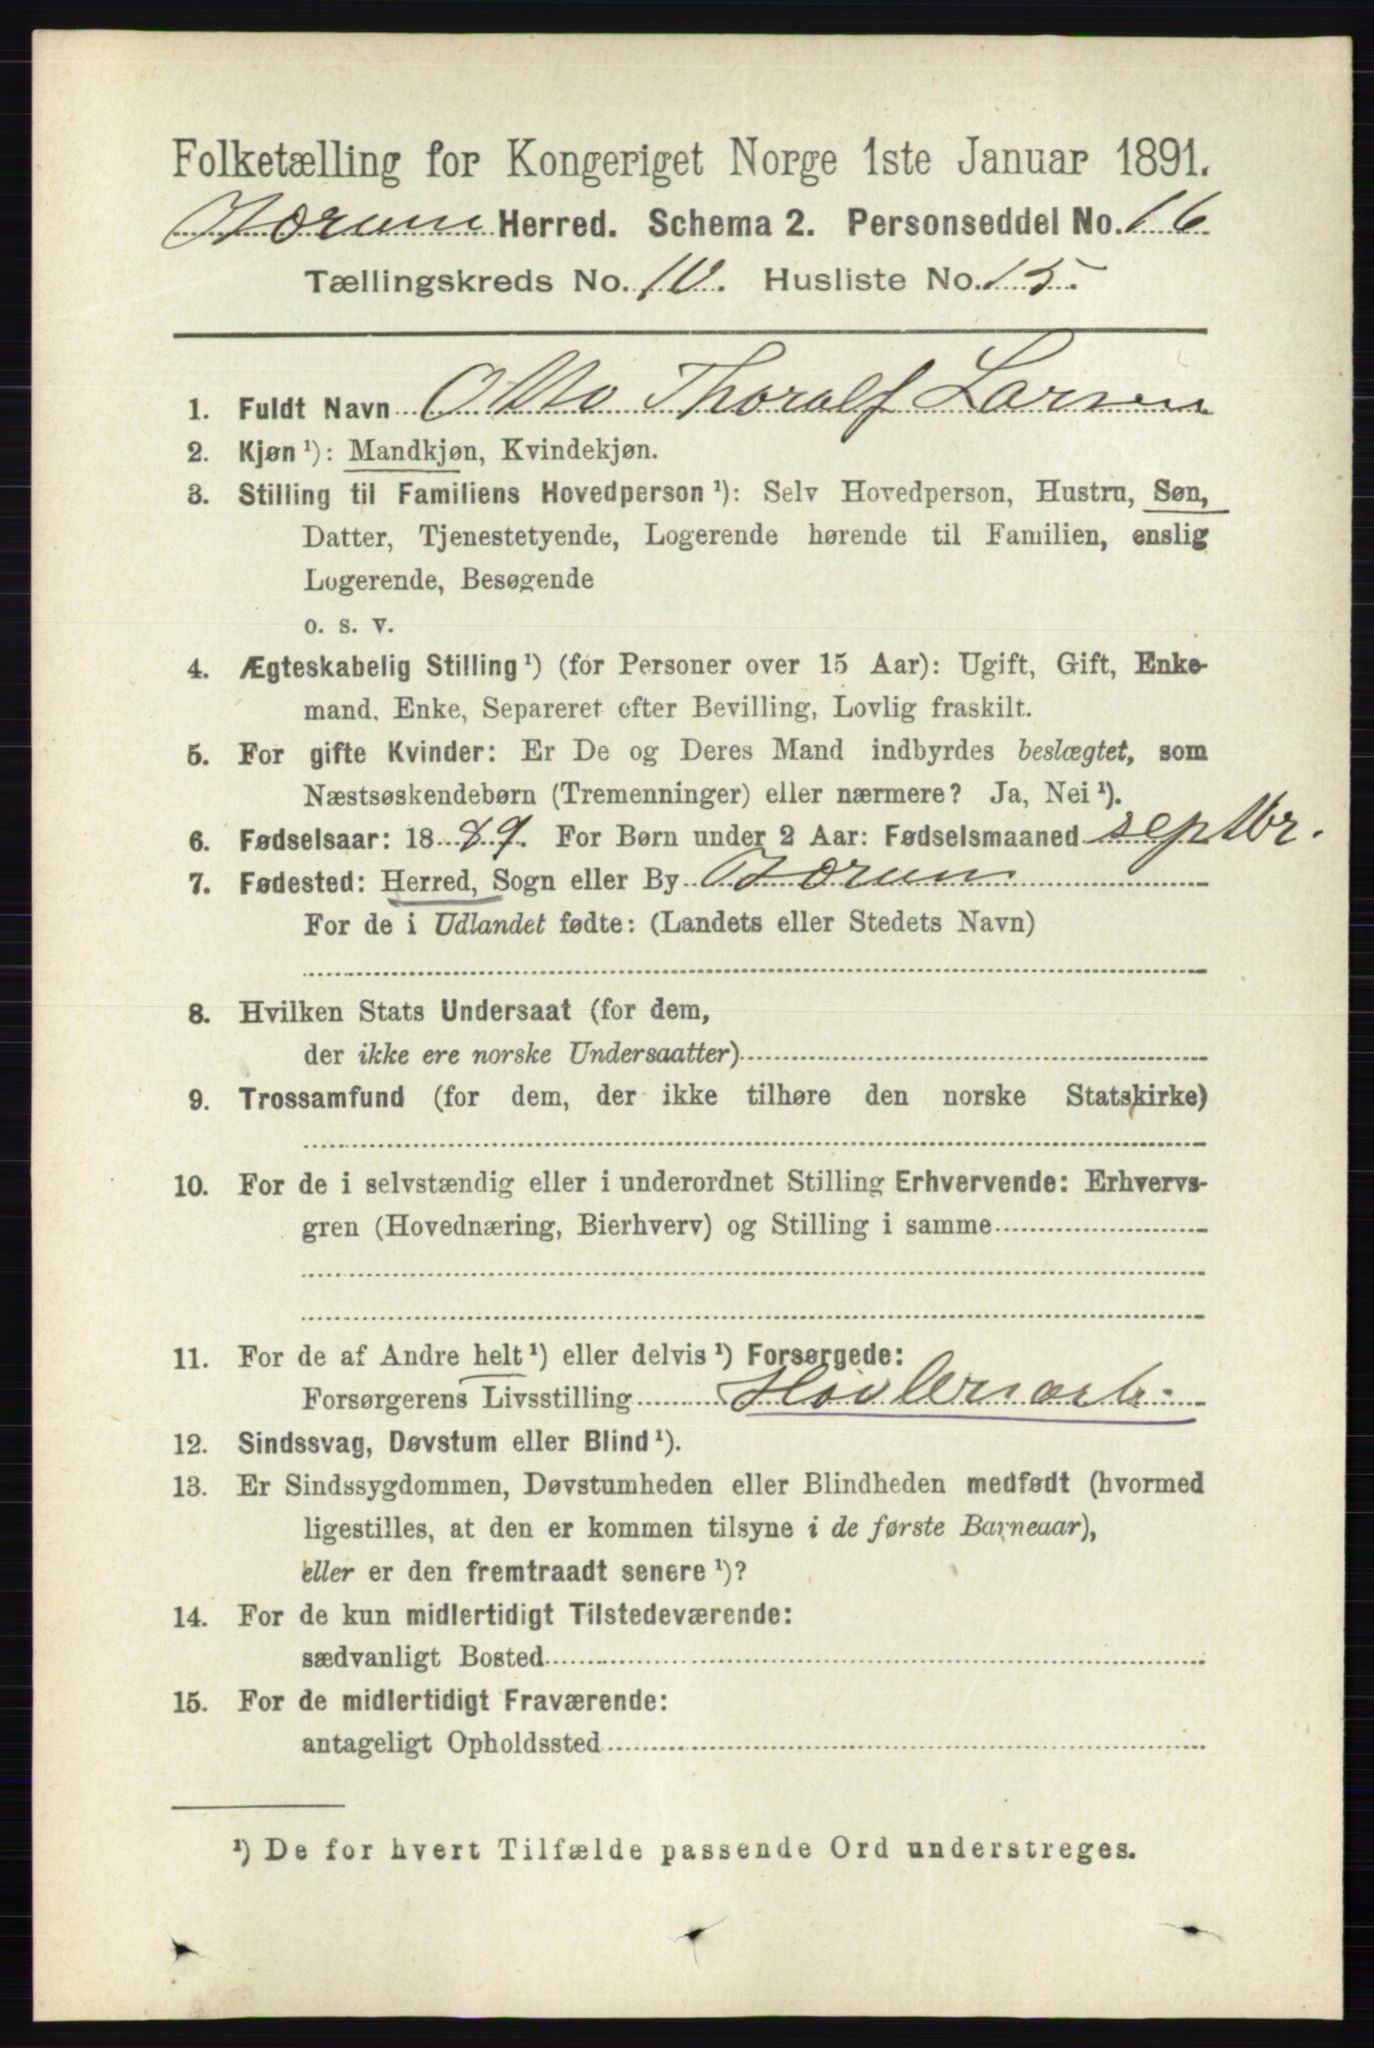 Folketælling for Kongeriget Norge 1ste Januar 1891.
Borum Herred. Schema 2. Personseddel No. 16
Tællingskreds No. 10. Husliste No. 15.
1. Fuldt Navn Otto Thoralf Larsen
2. Kjøn¹): Mandkjøn, Kvindekjøn.
3. Stilling til Familiens Hovedperson¹): Selv Hovedperson, Hustru, Søn,
Datter, Tjenestetyende, Logerende hørende til Familien, enslig
Logerende, Besøgende
o. s. v.
4. Ægteskabelig Stilling¹) (for Personer over 15 Aar): Ugift, Gift, Enke-
mand, Enke, Separeret efter Bevilling, Lovlig fraskilt.
5. For gifte Kvinder: Er De og Deres Mand indbyrdes beslægtet, som
Næstsøskendebørn (Tremenninger) eller nærmere? Ja, Nei¹).
6. Fødselsaar: 1889. For Børn under 2 Aar: Fødselsmaaned septbr.
7. Fødested: Herred, Sogn eller By Borum
For de i Udlandet fødte: (Landets eller Stedets Navn)
8. Hvilken Stats Undersaat (for dem,
der ikke ere norske Undersaatter)
9. Trossamfund (for dem, der ikke tilhøre den norske Statskirke)
10. For de i selvstændig eller i underordnet Stilling Erhvervende: Erhvervs-
gren (Hovednæring, Bierhverv) og Stilling i samme
11. For de af Andre helt¹) eller delvis¹) Forsørgede:
Forsørgerens Livsstilling Høvleriarb.
12. Sindssvag, Døvstum eller Blind¹).
13. Er Sindssygdommen, Døvstumheden eller Blindheden medfødt (hvormed
ligestilles, at den er kommen tilsyne i de første Barneaar),
eller er den fremtraadt senere¹)?
14. For de kun midlertidigt Tilstedeværende:
sædvanligt Bosted
15. For de midlertidigt Fraværende:
antageligt Opholdssted
¹) De for hvert Tilfælde passende Ord understreges.